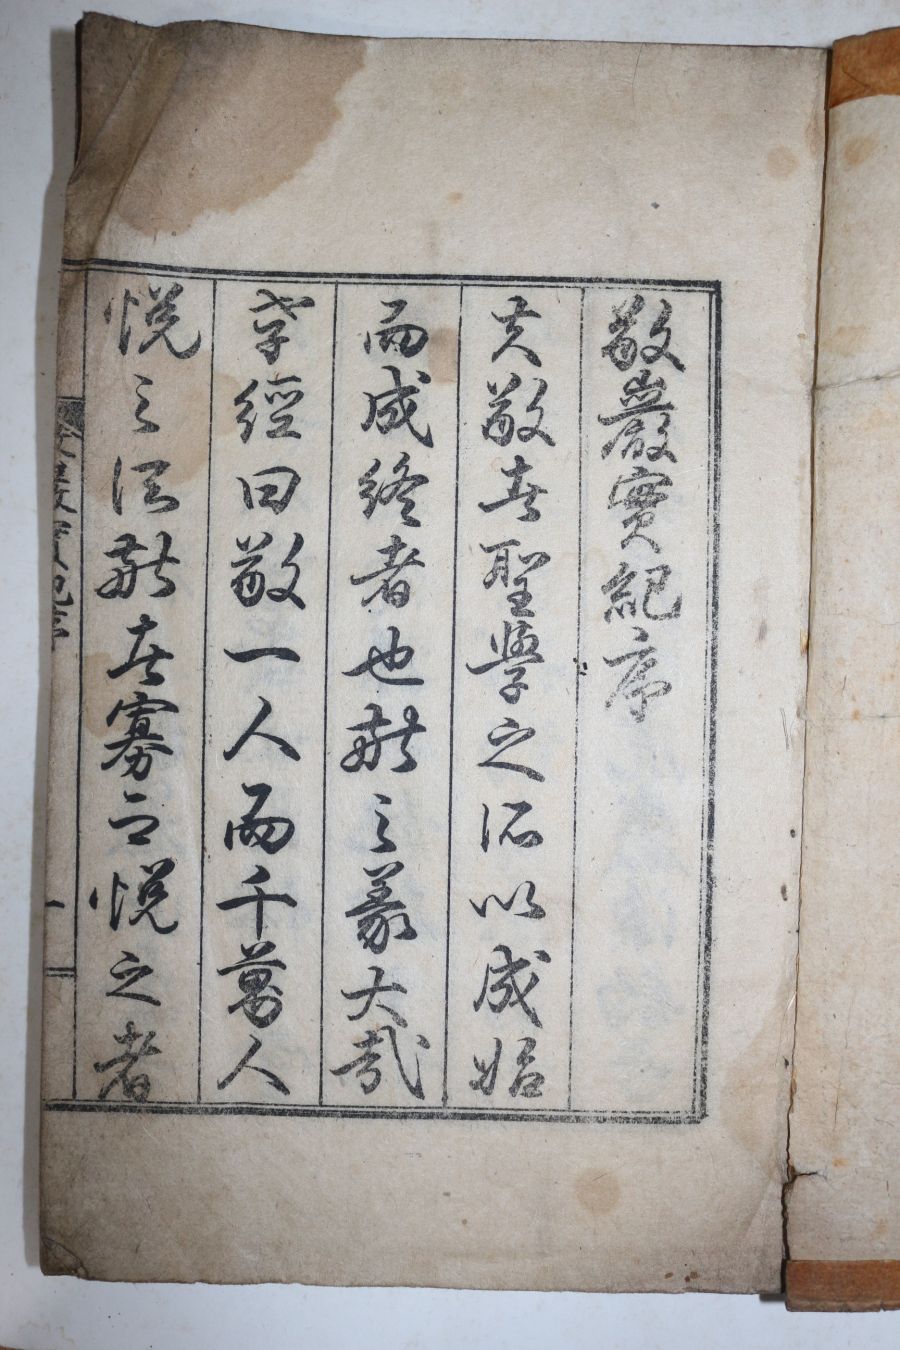 敬巖實紀序
夫敬者聖學之所以成始
而成終者也敬之義大哉
孝經曰敬一人而千萬人
悅之所敬者寡而悅之者
敬巖實紀序
一